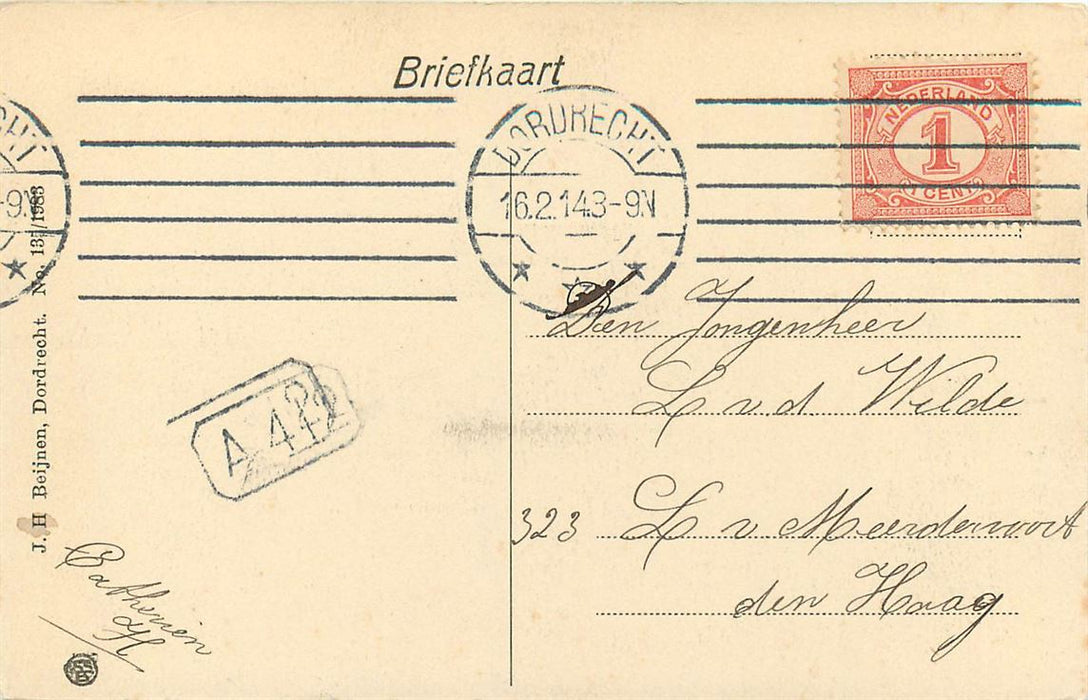 Briefkaart
DORDRECHT
16.2.14 3-9N
CHT
-9N
NEDERLAND
1
CENT
J. H Beijnen, Dordrecht. No.
/1983
A 412
Den Jongenheer
L v. d Wilde
323 L v Meerdervoort
den Haag
Catherien
H